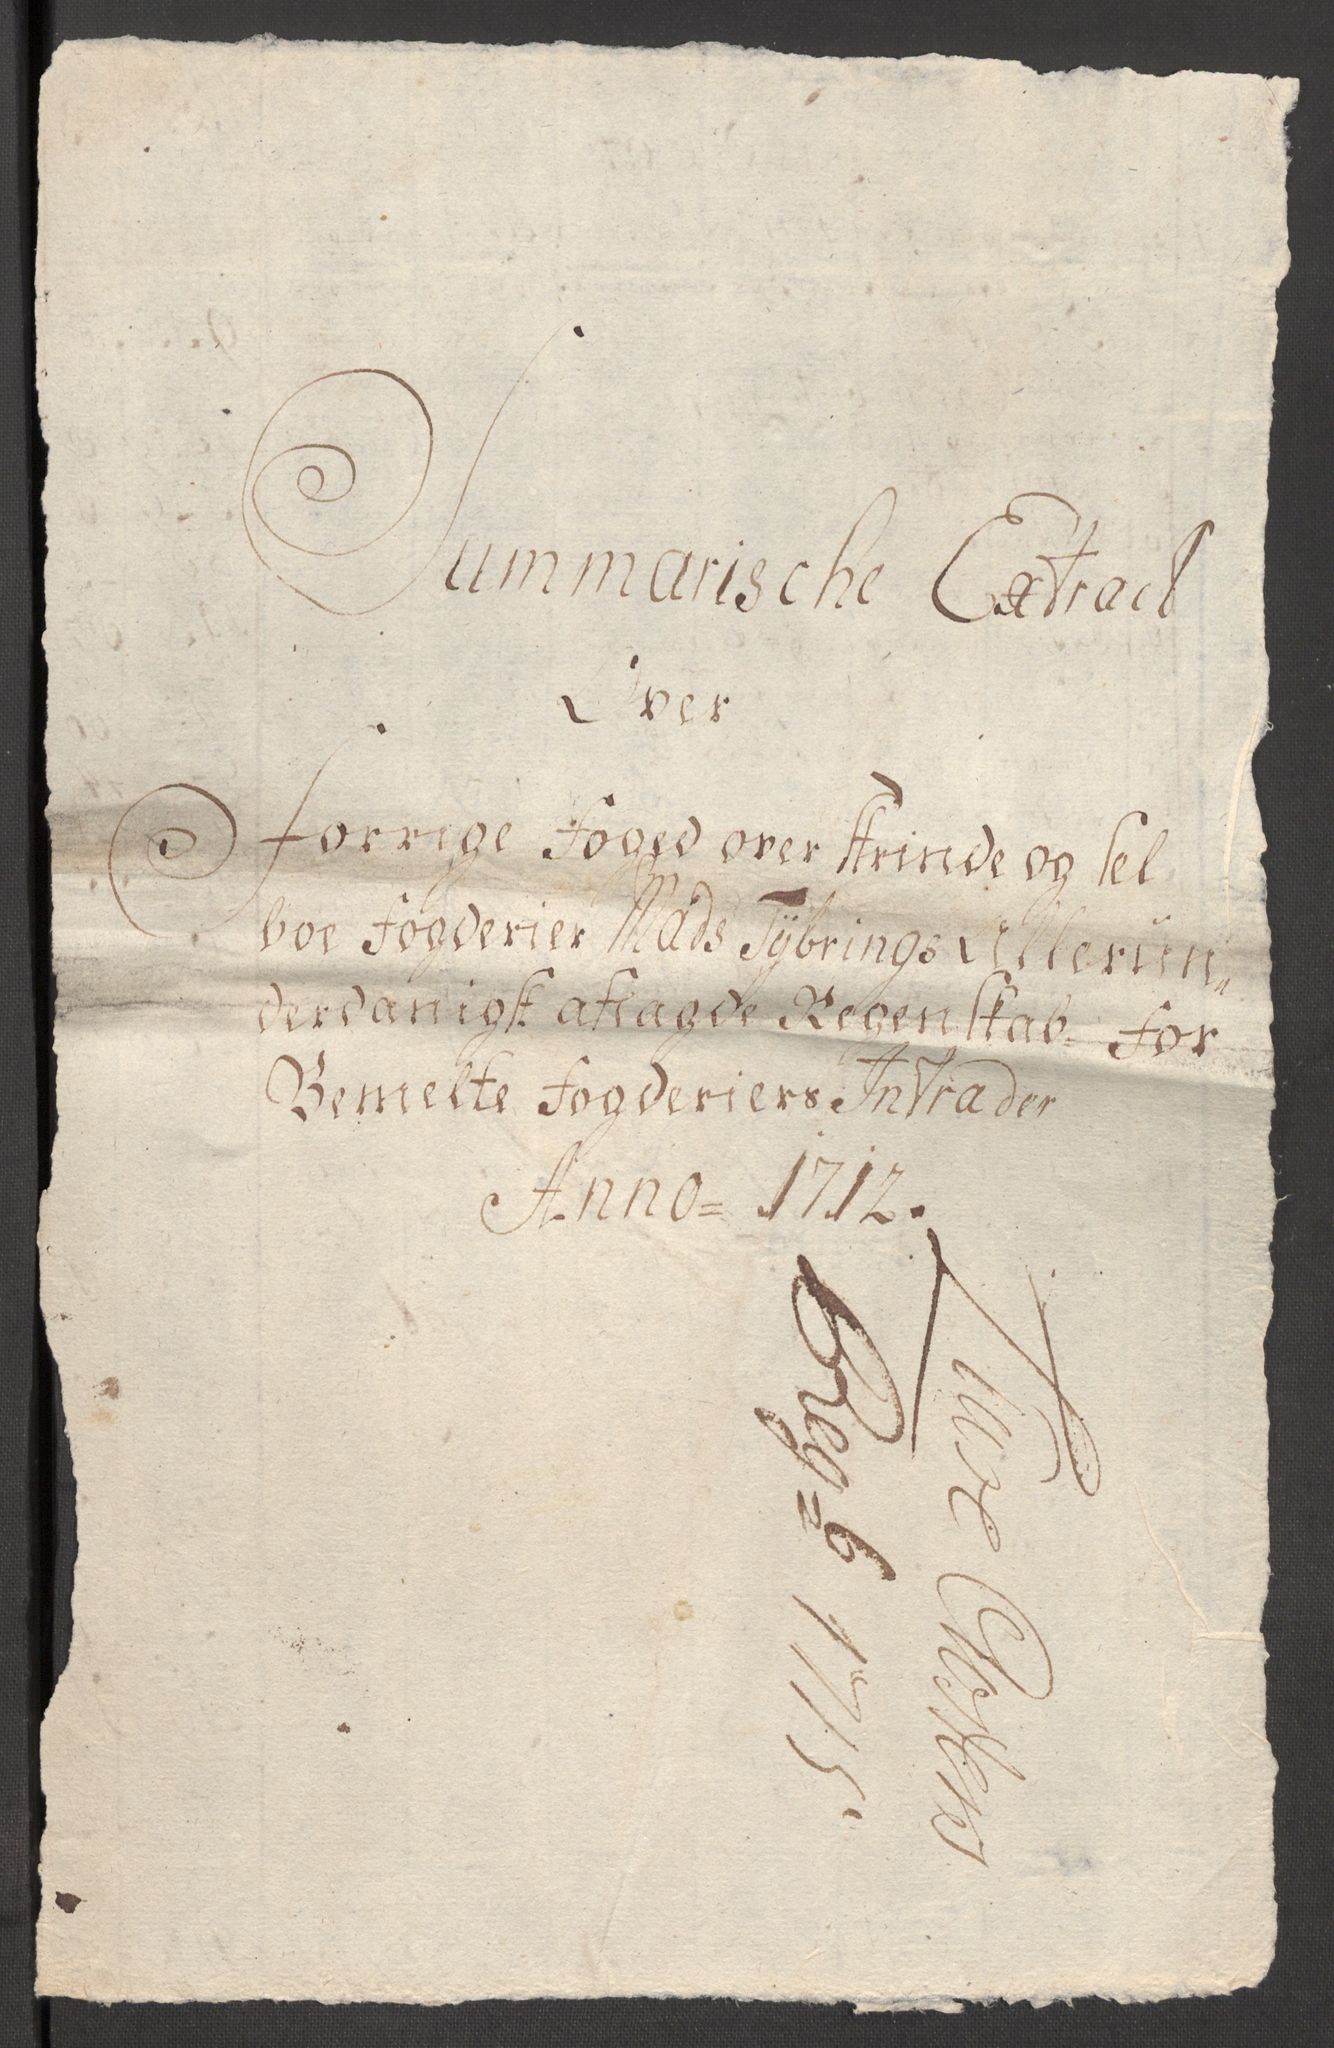 Summarische Extract
Over
forrige foged over Strinde og Sel
boe fogderier Mads Tÿbrings Allerün„
derdanigst aflagde Regenskab for
Bemelte fogderiers Intrader
Anno= 1712.
6 1715.